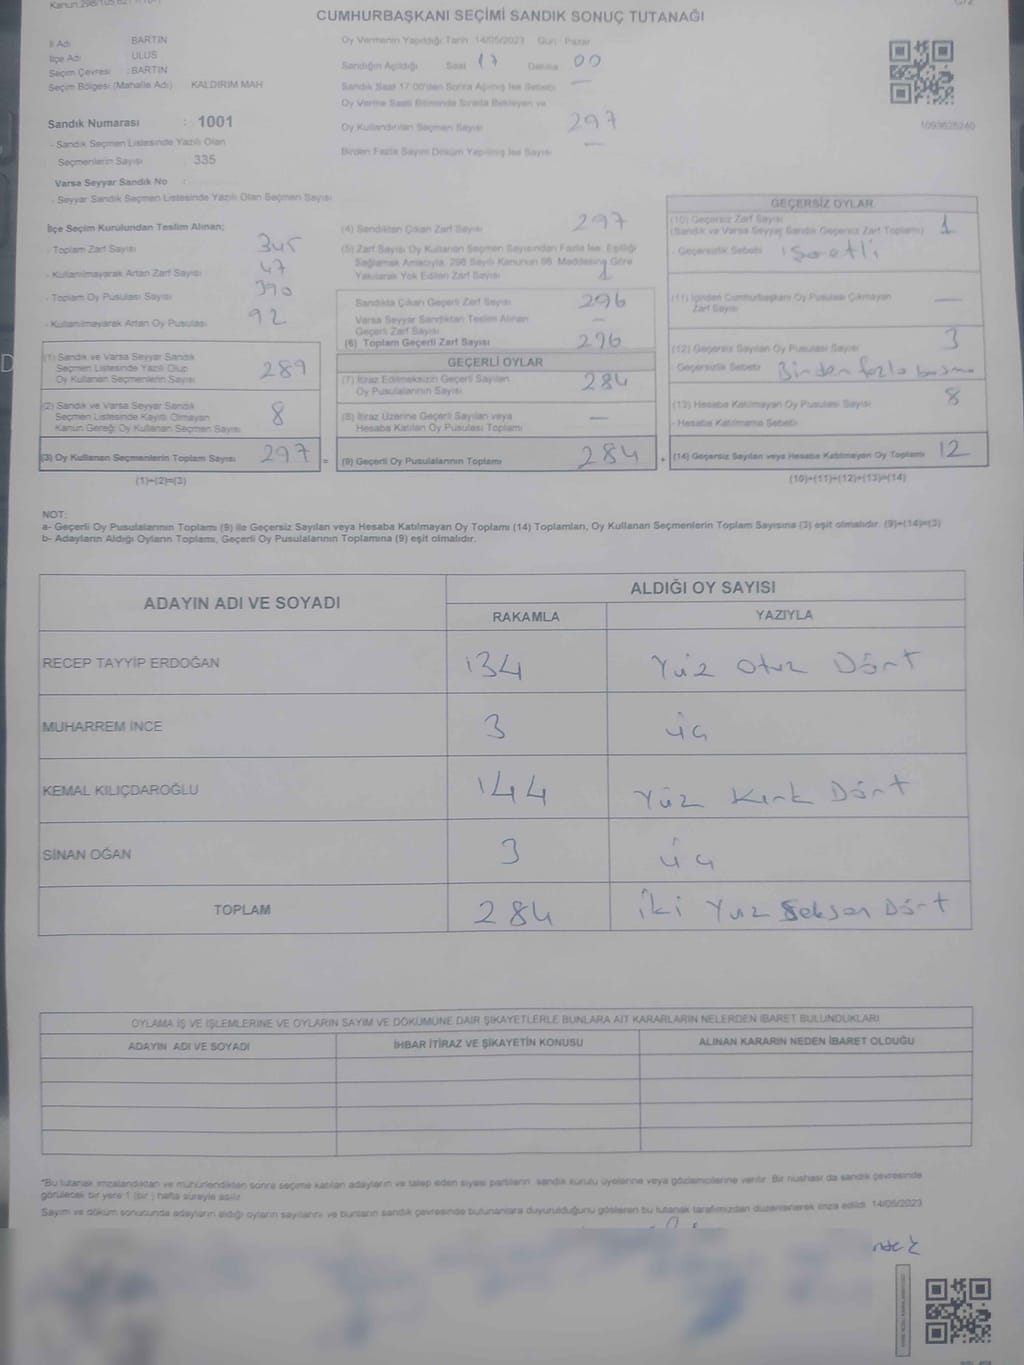 CUMHURBAŞKANI SEÇİMİ SANDIK SONUÇ TUTANAĞI
İl Adı BARTIN
İlçe Adı ULUS
Seçim Çevresi : BARTIN
Seçim Bölgesi (Mahalle Adı) KALDIRIM MAH
Sandık Numarası : 1001
- Sandık Seçmen Listesinde Yazılı Olan
Seçmenlerin Sayısı : 335
Varsa Seyyar Sandık No :
- Seyyar Sandık Seçmen Listesinde Yazılı Olan Seçmen Sayısı
Oy Vermenin Yapıldığı Tarih 14/05/2023 Gün Pazar
Sandığın Açıldığı Saat 17 Dakika 00
Sandık Saat 17:00'den Sonra Açılmış İse Sebebi —
Oy Verme Saati Bitiminde Sırada Bekleyen ve
Oy Kullandırılan Seçmen Sayısı 297
Birden Fazla Sayım Döküm Yapılmış İse Sayısı —
1093625240
İlçe Seçim Kurulundan Teslim Alınan;
- Toplam Zarf Sayısı 345
- Kullanılmayarak Artan Zarf Sayısı 47
- Toplam Oy Pusulası Sayısı 390
- Kullanılmayarak Artan Oy Pusulası 92
(1) Sandık ve Varsa Seyyar Sandık
Seçmen Listesinde Yazılı Olup
Oy Kullanan Seçmenlerin Sayısı 289
(2) Sandık ve Varsa Seyyar Sandık
Seçmen Listesinde Kayıtlı Olmayan
Kanun Gereği Oy Kullanan Seçmen Sayısı 8
(3) Oy Kullanan Seçmenlerin Toplam Sayısı 297 =
(1)+(2)=(3)
(4) Sandıktan Çıkan Zarf Sayısı 297
(5) Zarf Sayısı Oy Kullanan Seçmen Sayısından Fazla İse, Eşitliği
Sağlamak Amacıyla, 298 Sayılı Kanunun 98. Maddesine Göre
Yakılarak Yok Edilen Zarf Sayısı 1
Sandıkta Çıkan Geçerli Zarf Sayısı 296
Varsa Seyyar Sandıktan Teslim Alınan
Geçerli Zarf Sayısı —
(6) Toplam Geçerli Zarf Sayısı 296
GEÇERLİ OYLAR
(7) İtiraz Edilmeksizin Geçerli Sayılan
Oy Pusulalarının Sayısı 284
(8) İtiraz Üzerine Geçerli Sayılan veya
Hesaba Katılan Oy Pusulası Toplamı —
(9) Geçerli Oy Pusulalarının Toplamı 284 +
GEÇERSİZ OYLAR
(10) Geçersiz Zarf Sayısı
(Sandık ve Varsa Seyyar Sandık Geçersiz Zarf Toplamı) 1
- Geçersizlik Sebebi işaretli
(11) İçinden Cumhurbaşkanı Oy Pusulası Çıkmayan
Zarf Sayısı —
(12) Geçersiz Sayılan Oy Pusulası Sayısı 3
Geçersizlik Sebebi Birden fazla basma
(13) Hesaba Katılmayan Oy Pusulası Sayısı 8
- Hesaba Katılmama Sebebi
(14) Geçersiz Sayılan veya Hesaba Katılmayan Oy Toplamı 12
(10)+(11)+(12)+(13)=(14)
NOT:
a- Geçerli Oy Pusulalarının Toplamı (9) ile Geçersiz Sayılan veya Hesaba Katılmayan Oy Toplamı (14) Toplamları, Oy Kullanan Seçmenlerin Toplam Sayısına (3) eşit olmalıdır. (9)+(14)=(3)
b- Adayların Aldığı Oyların Toplamı, Geçerli Oy Pusulalarının Toplamına (9) eşit olmalıdır.
ADAYIN ADI VE SOYADI ALDIĞI OY SAYISI
RAKAMLA YAZIYLA
RECEP TAYYİP ERDOĞAN 134 Yüz Otuz Dört
MUHARREM İNCE 3 üç
KEMAL KILIÇDAROĞLU 144 Yüz Kırk Dört
SİNAN OĞAN 3 üç
TOPLAM 284 İki Yüz Seksen Dört
OYLAMA İŞ VE İŞLEMLERİNE VE OYLARIN SAYIM VE DÖKÜMÜNE DAİR ŞİKAYETLERLE BUNLARA AİT KARARLARIN NELERDEN İBARET BULUNDUKLARI
ADAYIN ADI VE SOYADI İHBAR İTİRAZ VE ŞİKAYETİN KONUSU ALINAN KARARIN NEDEN İBARET OLDUĞU
*Bu tutanak imzalandıktan ve mühürlendikten sonra seçime katılan adayların ve talep eden siyasi partilerin sandık kurulu üyelerine veya gözlemcilerine verilir. Bir nüshası da sandık çevresinde
görülecek bir yere 1 (bir ) hafta süreyle asılır.
Sayım ve döküm sonucunda adayların aldığı oyların sayılarını ve bunların sandık çevresinde bulunanlara duyurulduğunu gösteren bu tutanak tarafımızdan düzenlenerek imza edildi. 14/05/2023